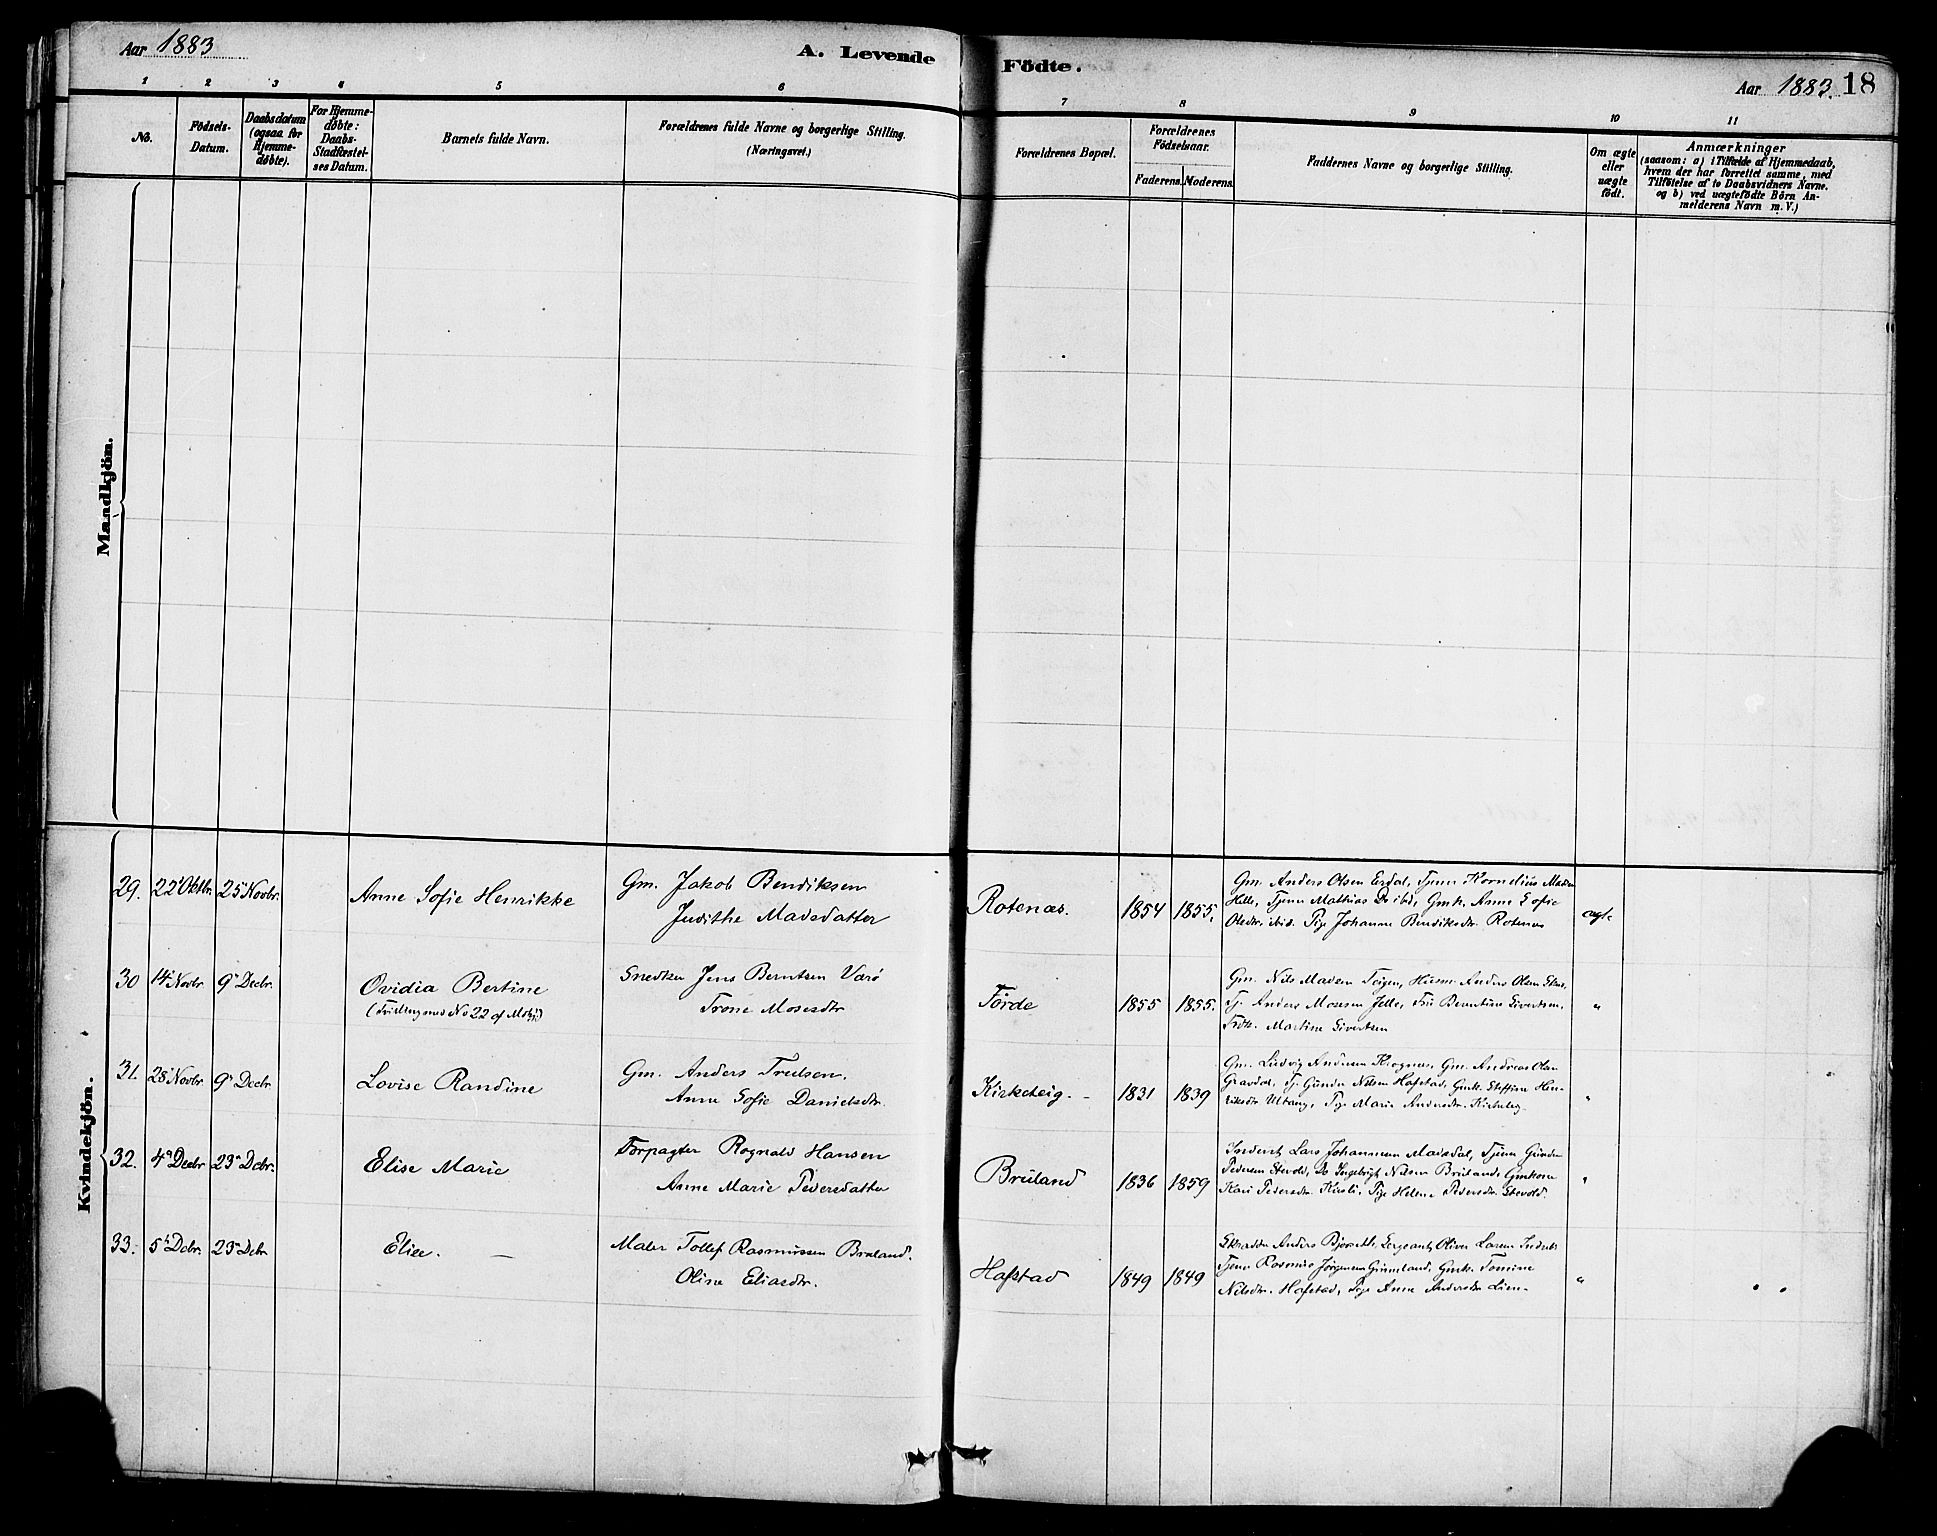 Aar 1883
A. Levende
Födte.
Aar 1883. 18
1 2 3 4 5 6 7 8 9 10 11
No.
Födsels-
Datum.
Daabsdatum
(ogsaa for
Hjemme-
døbte).
For Hjemme-
døbte:
Daabs-
Stadfæstel-
ses Datum.
Barnets fulde Navn.
Forældrenes fulde Navne og borgerlige Stilling.
(Næringsvei.)
Forældrenes Bopæl.
Forældrenes
Födselsaar.
Faderens. Moderens.
Faddernes Navne og borgerlige Stilling.
Om ægte
eller
uægte
födt.
Anmærkninger
(saasom: a) i Tilfælde af Hjemmedaab,
hvem der har forrettet samme, med
Tilföielse af to Daabsvidners Navne.
og b) ved uægtefödte Börn An-
melderens Navn m. V.)
Mandkjön.
Kvindekjön.
29. 22 Oktbr. 25 Novbr. Anne Sofie Henrikke
Gm. Jakob Bendiksen
Judithe Madsdatter
Rotenæs. 1854 1855.
Gm. Anders Olsen Erdal, Tjener Kornelius Madsen
Hille, Tjener Mathias Do ibd, Gmk. Anne Sofie
Olsdtr. ibid. Pige Johanne Bendiksdtr. Rotenæs
ægte
30 14 Novbr. 9 Decbr. Ovidia Bertine
(Tvilling med No 22 af Mkj)
Snedker Jens Berntsen Værö
Trone Mosesdtr
Förde 1855 1855.
Gm. Nils Madsen Teigen, Husm. Anders Olsen
Tj. Anders Mosesen Jelle, Frk Berntine Sivertsen,
Frk. Martine Sivertsen
"
31. 28 Novbr 9 Decbr Lovise Randine
Gm. Anders Trulsen.
Anne Sofie Danielsdtr.
Kirketeig. - 1831 1839
Gm. Ludvig Andersen Gm. Andreas Olsen
Gravdal, Tj. Gunder Nilsen Hafstad, Gmk. Steffine Hen-
riksdtr Utvang, Pige Marie Andersdtr. Kirketeig
"
32. 4 Decbr 23 Dcbr. Elise Marie
Forpagter Rognald Hansen
Anne Marie Pedersdatter
Bruland 1836 1859
Inderst Lars Johannesen Madsdal, Tjener Gunder
Pedersen Stevold, Do Ingebrigt Nilsen Bruland, Gmkone
Kari Pedersdtr. Kusli, Pige Helene Pedersdtr. Stevold.
"
33. 5 Dcbr. 23 Dcbr Elise. —
Maler Tollef Rasmussen Bruland.
Oline Eliasdtr.
Hafstad 1849 1849
Skrædder Anders Bjørseth, Sergeant Oliver Larsen
Tjener Rasmus Jørgensen Gmk. Tomine
Nilsdtr. Hafstad, Pige Anne Andersdtr Lien-
"